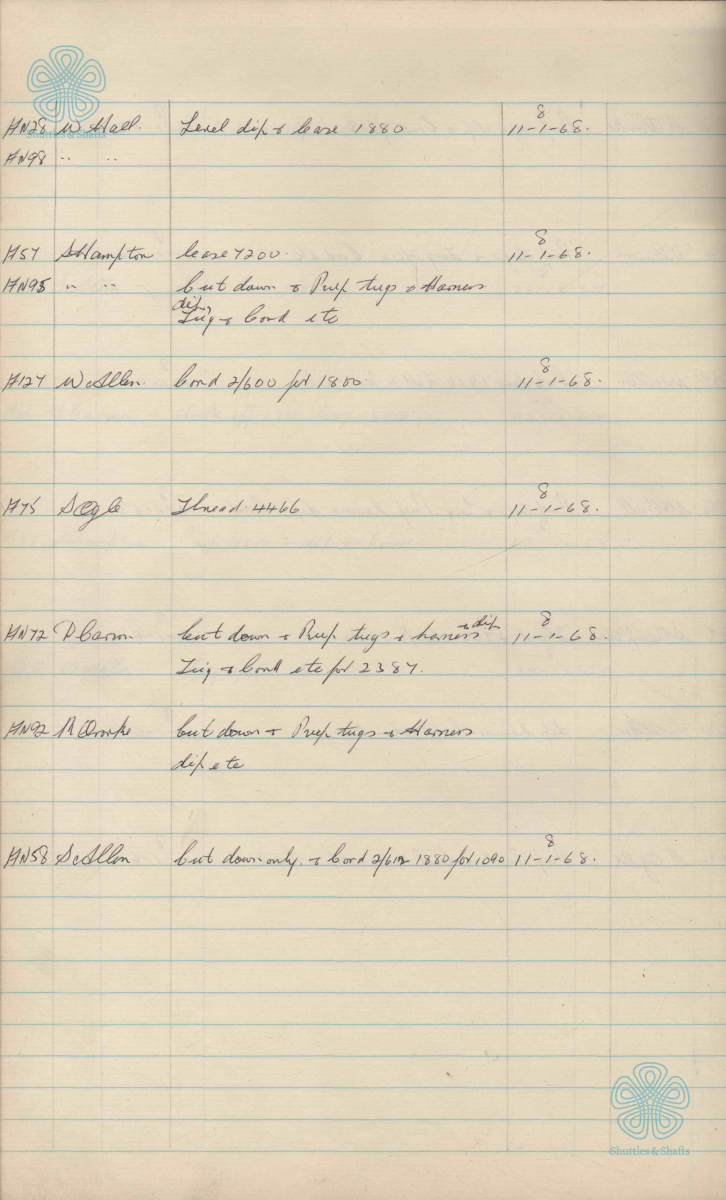 8
HN28 W Hall. Level dip & lease 1880 11-1-68.
Shuttles & Shafts
HN98 " "
8
H57 S Hampton lease 7200. 11-1-68.
HN95 " " Cut down & Prep tugs & Harness
dip,
Tug & Cord etc
8
H127 W Allen. Cord 2/600 for 1880. 11-1-68.
8
H75 S Thread 4466 11-1-68.
& dip 8
HN72 P Cut down & Prep tugs & harness 11-1-68.
Tug & Cord etc for 2387.
HN92 R Cut down & Prep tugs & Harness
dip etc
8
HN58 S Allen Cut down only. & Cord 1880 for 1090 11-1-68.
Shuttles & Shafts